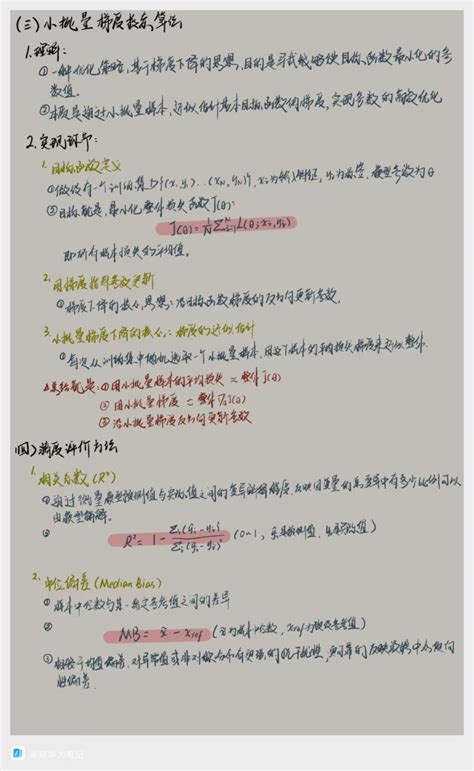 (三)小批量梯度救急算法
1.理解:
①一种优化策略,基于梯度下降的思想,目的是寻找能够使目标函数最小化的参
数值。
②本质是通过小批量样本,近似估计整体目标函数的梯度,实现参数的高效优化
2.实现环节:
1.目标函数定义
①假设有一个训练集D{(x₁,y₁)...(xN,yN)},xi为输入特征,yi为标签,模型参数为θ
②目标就是,最小化整体损失函数J(θ):
J(θ)=1/N Σᴺi=1 L(θ;xi,yi)
即所有样本损失的平均值。
2.用梯度指导参数更新
①梯度下降的核心思想:沿目标函数梯度的反方向更新参数
3.小批量梯度下降的核心:梯度的近似估计
①每次从训练集中随机选取一个小批量样本,用这个样本的平均损失梯度来近似整体
总结就是:①用小批量样本的平均损失≈整体J(θ)
②用小批量梯度≈整体∇J(θ)
③沿小批量梯度反方向更新参数
(四)精度评价方法
1.相关系数(R²)
①通过衡量模型预测值与实际值之间的变异解释程度,反映因变量的总变异中有多少比例可以
由模型解释。
② R²=1-
(0~1,
2.中位偏差(Median Bias)
①样本中位数与某一指定参考值之间的差异
② MB=x̃-xref(x̃为样本中位数,xref为指定参考值)
③相较于均值偏差,对异常值或非对称分布有更强的抗干扰性,更可靠的反映数据中心倾向
性偏差.